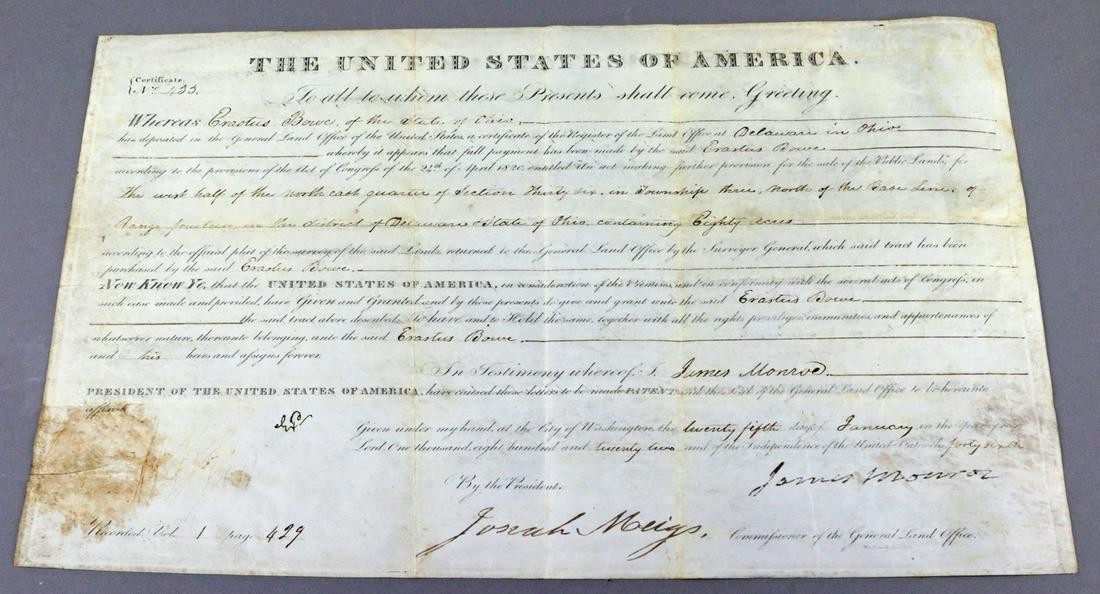 THE UNITED STATES OF AMERICA.
Certificate,
No. 433.
To all to whom these Presents shall come, Greeting.
Whereas Erastus Bowe, of the State of Ohio,
has deposited in the General Land Office of the United States, a certificate of the Register of the Land Office at Delaware in Ohio
whereby it appears that full payment has been made by the said Erastus Bowe
according to the provisions of the Act of Congress of the 24th of April 1820 entitled An act making further provision for the sale of the Public Lands; for
the west half of the north east quarter of Section thirty six, in Township three, north of the Base Line, of
Range fourteen, in the district of Delaware & State of Ohio, containing Eighty acres
according to the official plat of the survey of the said Lands, returned to the General Land Office by the Surveyor General, which said tract has been
purchased by the said Erastus Bowe,
Now Know Ye, that the UNITED STATES OF AMERICA, in consideration of the Premises, and in conformity with the several acts of Congress, in
such case made and provided, have Given and Granted, and by these presents do give and grant unto the said Erastus Bowe
the said tract above described: To have and to Hold the same, together with all the rights, privileges, immunities, and appurtenances of
whatsoever nature, thereunto belonging, unto the said Erastus Bowe,
and his heirs and assigns forever.
In Testimony whereof, I, James Monroe
PRESIDENT OF THE UNITED STATES OF AMERICA, have caused these Letters to be made PATENT, and the Seal of the General Land Office to be hereunto
affixed
Given under my hand, at the City of Washington, the twenty fifth day of January in the Year of our
Lord One thousand, eight hundred and twenty two and of the Independence of the United States the forty sixth
James Monroe
By the President.
Josiah Meigs, Commissioner of the General Land Office.
Recorded, Vol. 1 page 429